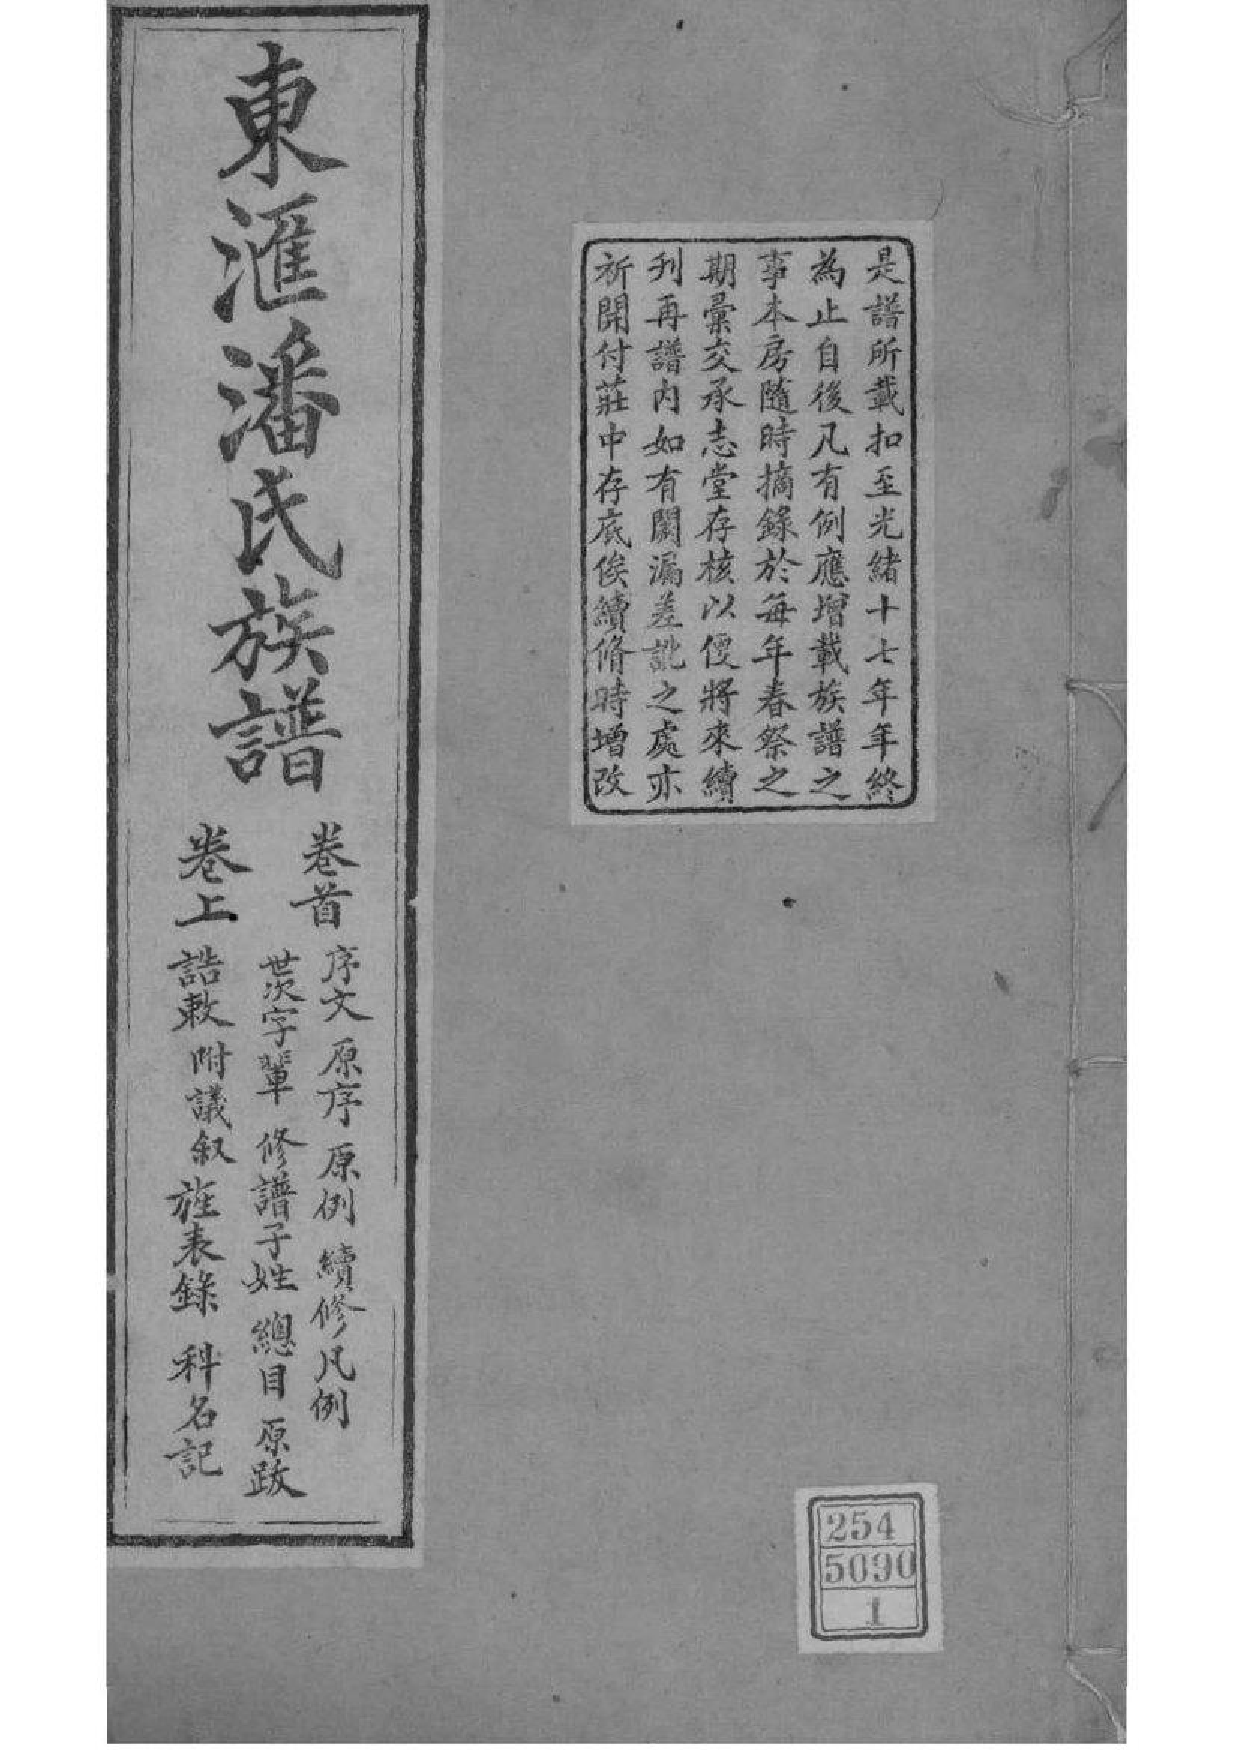 是譜所載扣至光緒十七年年終
為止自後凡有例應增載族譜之
事本房隨時摘錄於每年春祭之
期彙交承志堂存核以便將來續
刋再譜內如有闕漏差訛之處亦
祈開付莊中存底俟續脩時增改
東滙潘氏族譜
卷首
序文 原序 原例 續修凡例
世次字輩 修譜子姓 總目 原跋
卷上
誥敕 附議叙 旌表錄 科名記
254
5090
1